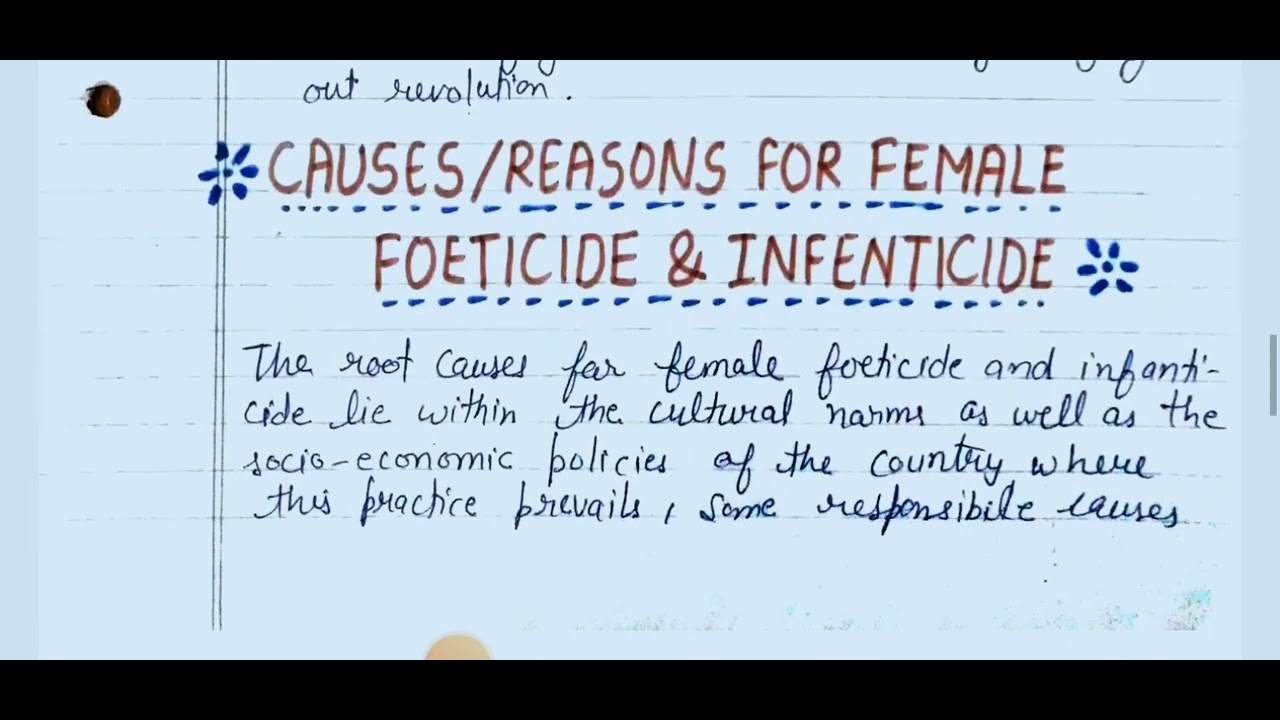 out revolution.
CAUSES/REASONS FOR FEMALE
FOETICIDE & INFENTICIDE
The root causes for female foeticide and infanti-
cide lie within the cultural norms as well as the
socio-economic policies of the country where
this practice prevails, some responsibile causes